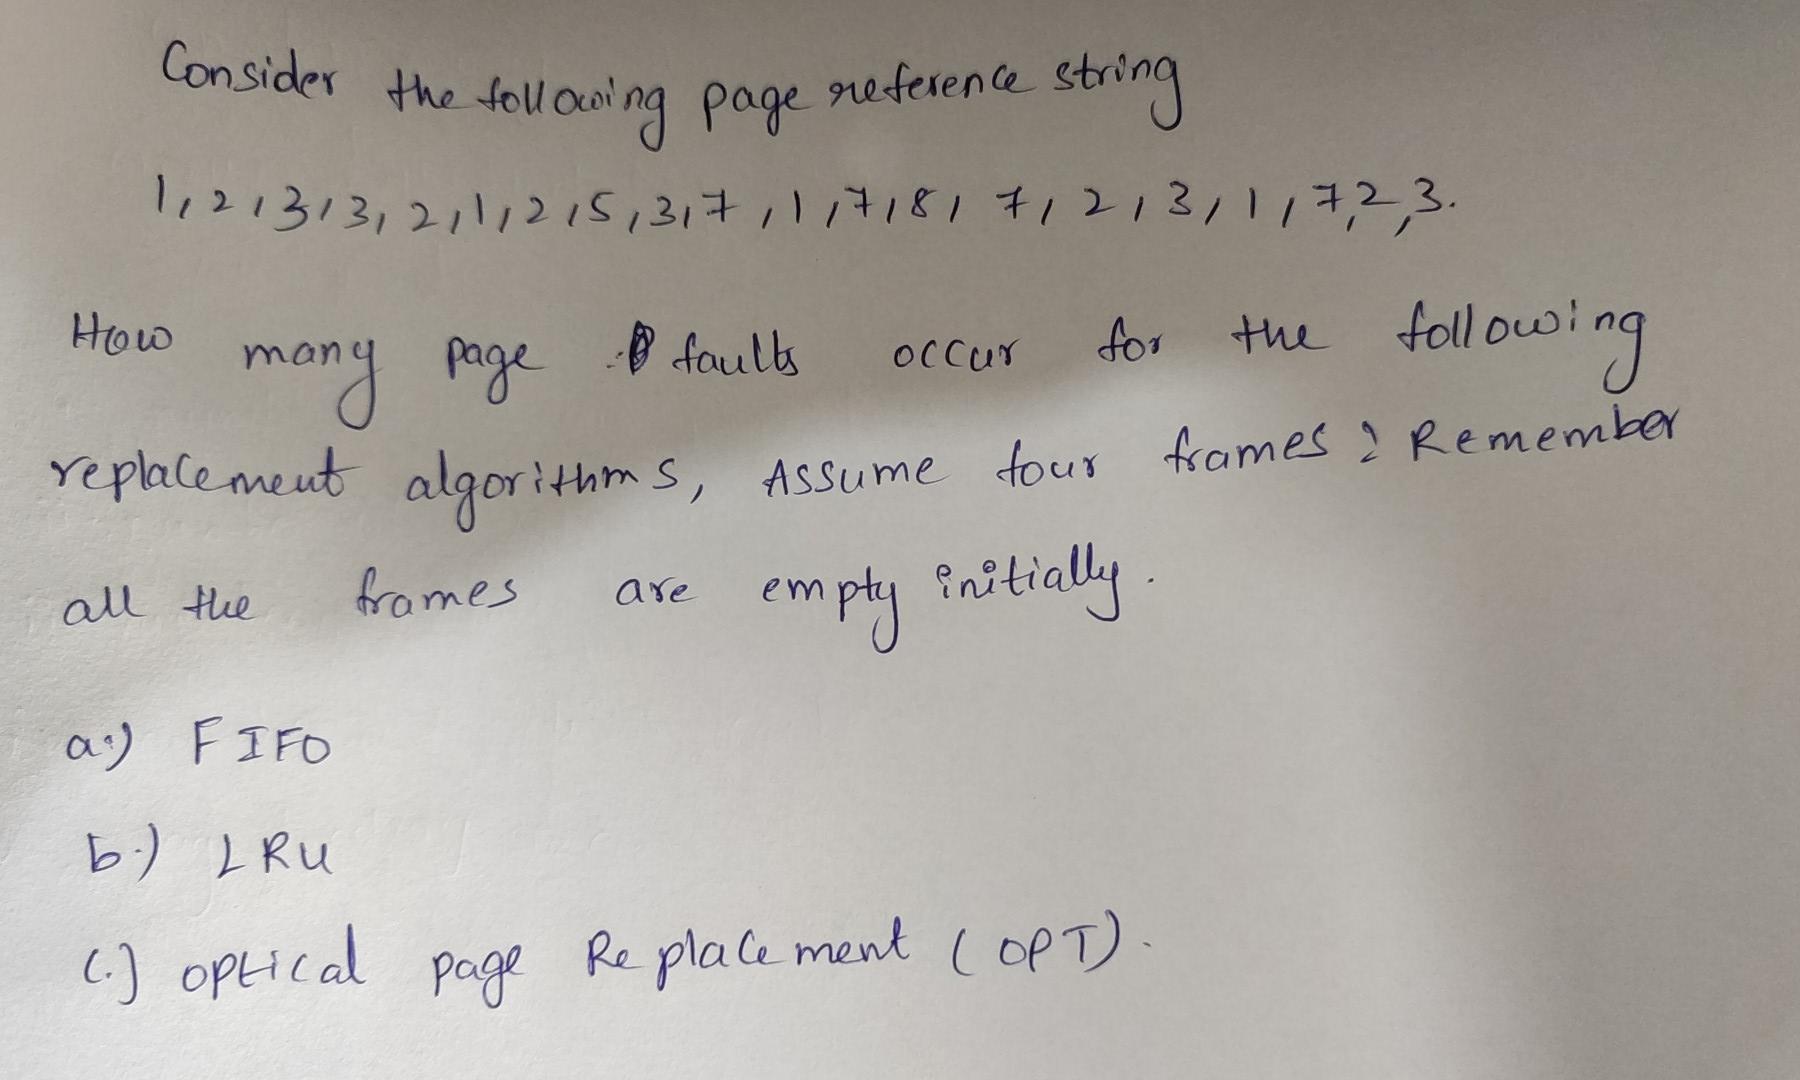 Consider the following page reference string
1,2,3,3,2,1,2,5,3,7,1,7,8,7,2,3,1,7,2,3.
How many page faults occur for the following
replacement algorithms, Assume four frames? Remember
all the frames are empty initially.
a.) FIFO
b.) LRU
c.) optical page Replacement (OPT).